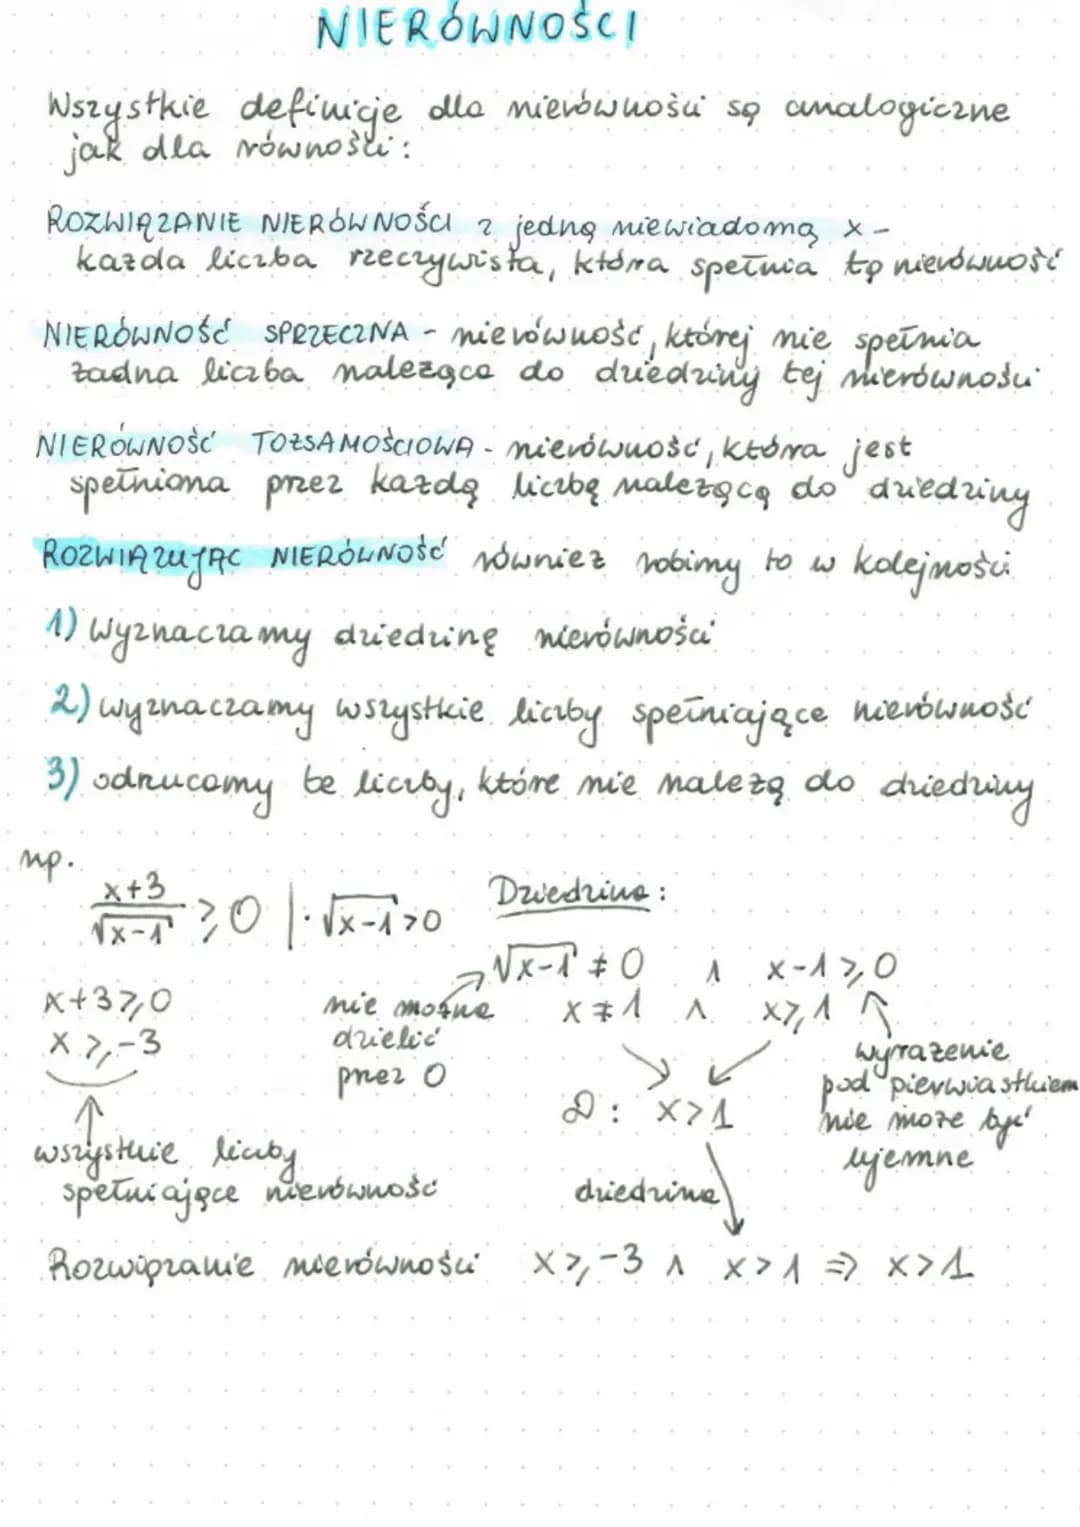 NIERÓWNOŚCI
Wszystkie definicje dla nierówności są analogiczne
jak dla równości:
ROZWIĄZANIE NIERÓWNOŚCI z jedną niewiadomą x -
każda liczba rzeczywista, która spełnia tę nierówność
NIERÓWNOŚĆ SPRZECZNA - nierówność, której nie spełnia
żadna liczba należąca do dziedziny tej nierówności
NIERÓWNOŚĆ TOŻSAMOŚCIOWA - nierówność, która jest
spełniona przez każdą liczbę należącą do dziedziny
ROZWIĄZUJĄC NIERÓWNOŚĆ również robimy to w kolejności
1) wyznaczamy dziedzinę nierówności
2) wyznaczamy wszystkie liczby spełniające nierówność
3) odrzucamy te liczby, które nie należą do dziedziny
np.
(x+3)/√(x-1) ⩾ 0 | · √(x-1) > 0
x+3 ⩾ 0
x ⩾ -3
wszystkie liczby
spełniające nierówność
Dziedzina:
√(x-1) ≠ 0 ∧ x-1 ⩾ 0
x ≠ 1 ∧ x ⩾ 1
nie można
dzielić
przez 0
wyrażenie
pod pierwiastkiem
nie może być
ujemne
D: x > 1
dziedzina
Rozwiązanie nierówności x ⩾ -3 ∧ x > 1 ⇒ x > 1